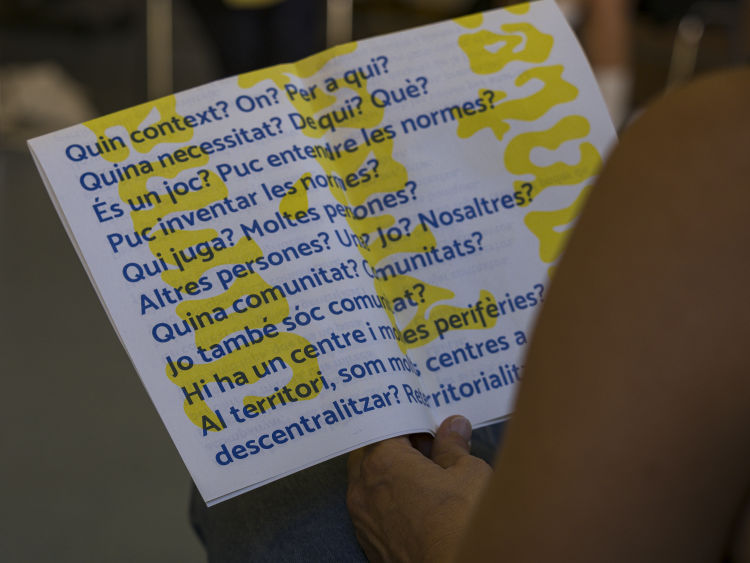 Quin context? On? Per a qui?
Quina necessitat? De qui? Què?
És un joc? Puc entendre les normes?
Puc inventar les normes?
Qui juga? Moltes persones?
Altres persones? Una? Jo? Nosaltres?
Quina comunitat? Comunitats?
Jo també sóc comunitat?
Hi ha un centre i moltes perifèries?
Al territori, som molts centres a
descentralitzar?